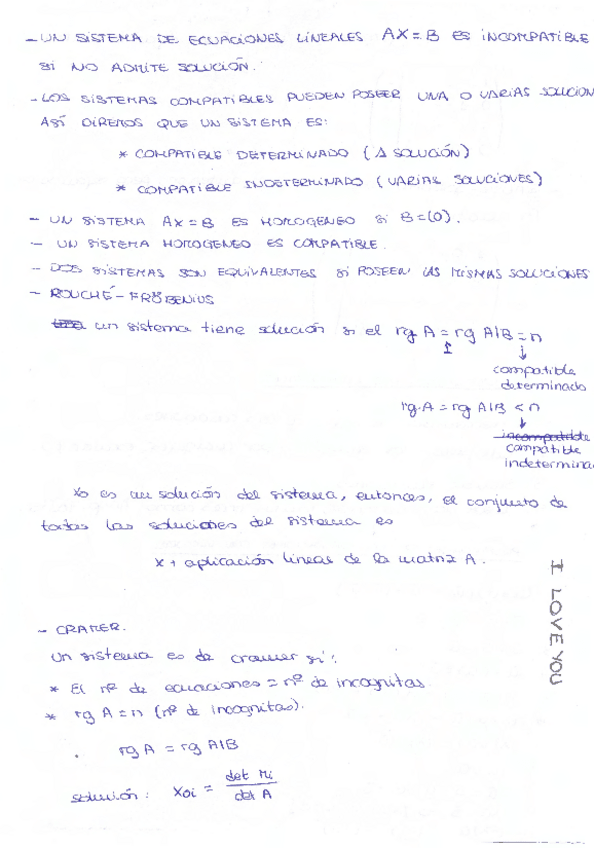 - UN SISTEMA DE ECUACIONES LINEALES AX = B ES INCOMPATIBLE
SI NO ADMITE SOLUCIÓN.
- LOS SISTEMAS COMPATIBLES PUEDEN POSEER UNA O VARIAS SOLUCION
ASÍ DIREMOS QUE UN SISTEMA ES:
* COMPATIBLE DETERMINADO (1 SOLUCIÓN)
* COMPATIBLE INDETERMINADO (VARIAS SOLUCIONES)
- UN SISTEMA AX = B ES HOMOGENEO SI B = (0).
- UN SISTEMA HOMOGENEO ES COMPATIBLE.
- DOS SISTEMAS SON EQUIVALENTES SI POSEEN LAS MISMAS SOLUCIONES
- ROUCHÉ - FRÖBENIUS
un sistema tiene solución si el rg A = rg A|B = n
↓
compatible
determinado
rg A = rg A|B < n
↓
incompatible
compatible
indetermina
Xo es un solución del sistema, entonces, el conjunto de
todas las soluciones del sistema es
x + aplicación lineas de la matriz A.
I LOVE YOU
- CRAMER.
Un sistema es de cramer si:
* El nº de ecuaciones = nº de incognitas
* rg A = n (nº de incognitas).
. rg A = rg A|B
solución: Xoi = det Mi / det A